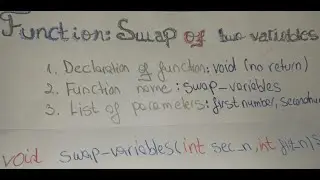 Function: Swap of two variables
1. Declaration of function: void (no return)
2. Function name: swap-variables
3. List of parameters: first number, secondnum
void swap-variables(int sec_n, int fi